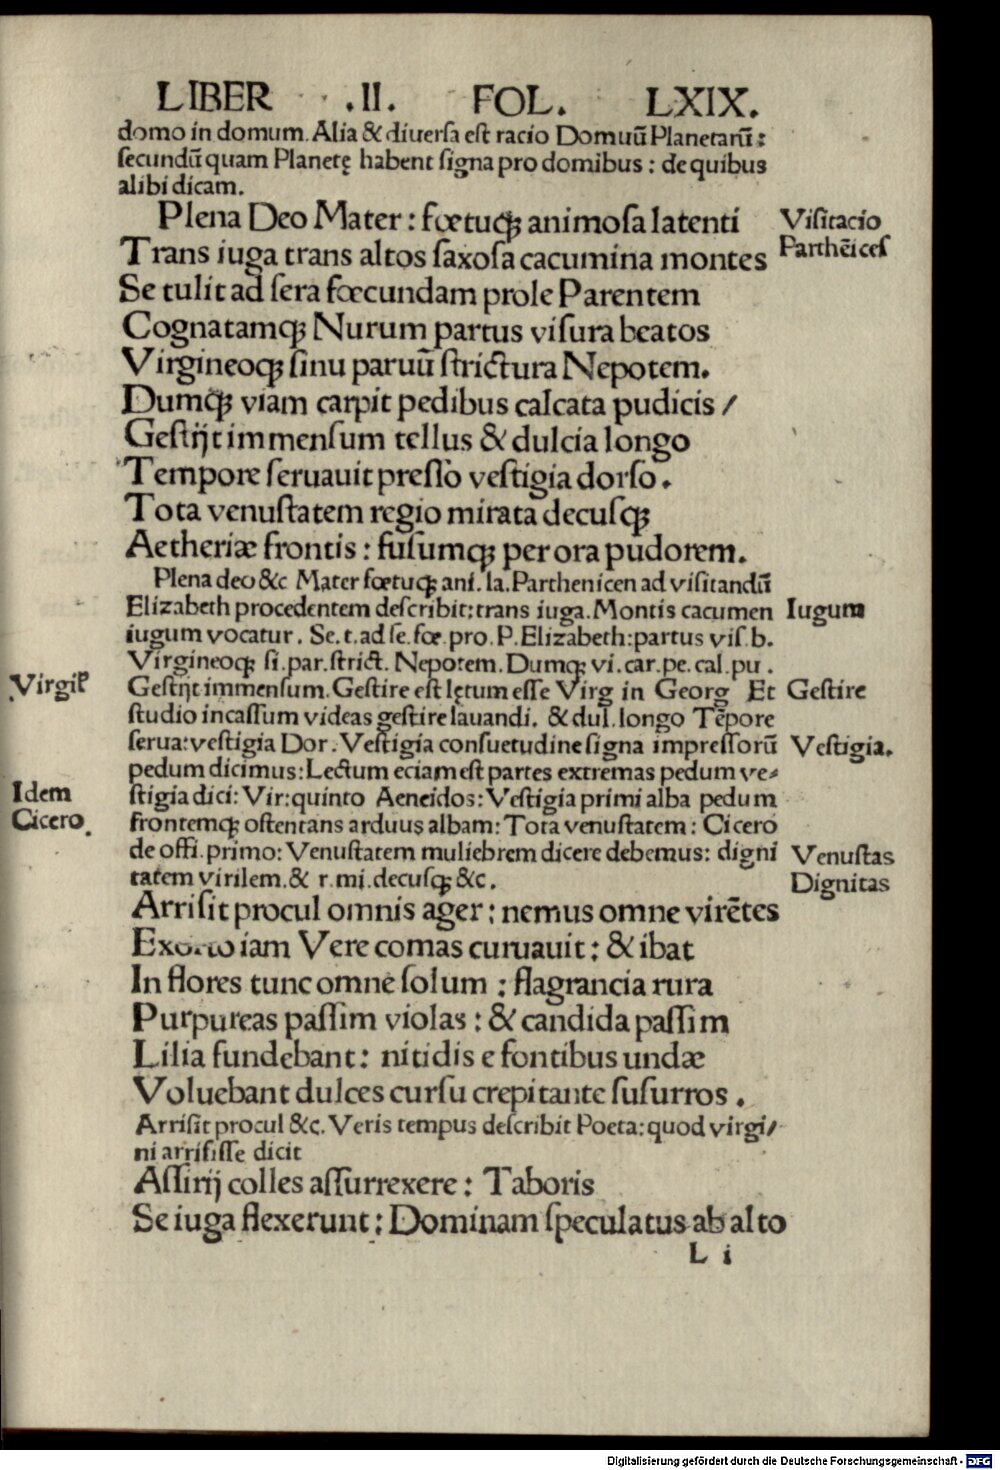 LIBER .II. FOL. LXIX.
domo in domum. Alia & diuersa est racio Domuū Planetarū:
secundū quam Planetę habent signa pro domibus : de quibus
alibi dicam.
Plena Deo Mater : fœtuqꝫ animosa latenti
Visitacio
Parthēices
Trans iuga trans altos saxosa cacumina montes
Se tulit ad sera fœcundam prole Parentem
Cognatamqꝫ Nurum partus visura beatos
Virgineoqꝫ sinu paruū strictura Nepotem.
Dumqꝫ viam carpit pedibus calcata pudicis /
Gestijt immensum tellus & dulcia longo
Tempore seruauit presso vestigia dorso.
Tota venustatem regio mirata decusqꝫ
Aetheriæ frontis : fusumqꝫ per ora pudorem.
Plena deo &c Mater fœtuqꝫ ani. la. Parthenicen ad visitandū
Elizabeth procedentem describit: trans iuga. Montis cacumen
Iugum
iugum vocatur. Se. t. ad se. fœ. pro. P. Elizabeth: partus vis. b.
Virgineoqꝫ si. par. strict. Nepotem. Dumqꝫ vi. car. pe. cal. pu.
Virgil
Gestijt immensum. Gestire est lętum esse Virg in Georg Et
Gestire
studio incassum videas gestire lauandi. & dul. longo Tēpore
serua: vestigia Dor. Vestigia consuetudine signa impressorū
Vestigia.
pedum dicimus: Lectum eciam est partes extremas pedum ve-
Idem
stigia dici: Vir: quinto Aeneidos: Vestigia primi alba pedum
Cicero.
frontemqꝫ ostentans arduus albam: Tota venustatem: Cicero
de offi. primo: Venustatem muliebrem dicere debemus: digni
Venustas
tatem virilem. & r. mi. decusqꝫ &c.
Dignitas
Arrisit procul omnis ager : nemus omne virētes
Exorto iam Vere comas curuauit : & ibat
In flores tunc omne solum : flagrancia rura
Purpureas passim violas : & candida passim
Lilia fundebant : nitidis e fontibus undæ
Voluebant dulces cursu crepitante susurros.
Arrisit procul &c. Veris tempus describit Poeta: quod virgi/
ni arrisisse dicit
Assirij colles assurrexere : Taboris
Se iuga flexerunt : Dominam speculatus ab alto
L i
Digitalisierung gefördert durch die Deutsche Forschungsgemeinschaft - DFG